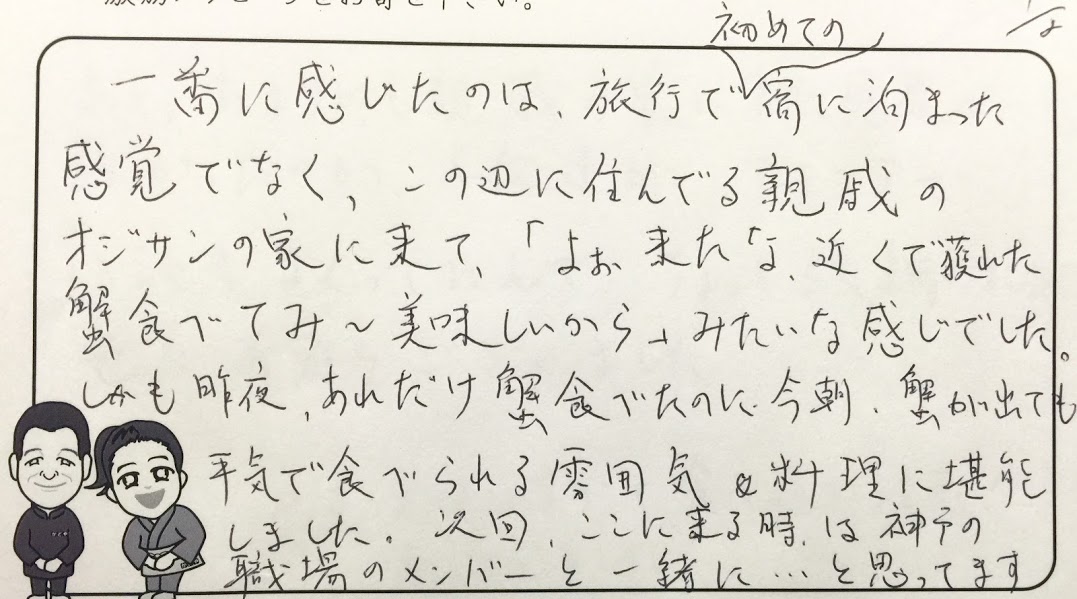 初めての
一番に感じたのは、旅行で宿に泊まった
感覚でなく、この辺に住んでる親戚の
オジサンの家に来て、「よぉ来たな、近くで獲れた
蟹食べてみ～美味しいから」みたいな感じでした。
しかも昨夜、あれだけ蟹食べたのに今朝、蟹が出ても
平気で食べられる雰囲気&料理に堪能
しました。次回、ここに来る時は神戸の
職場のメンバーと一緒に…と思ってます